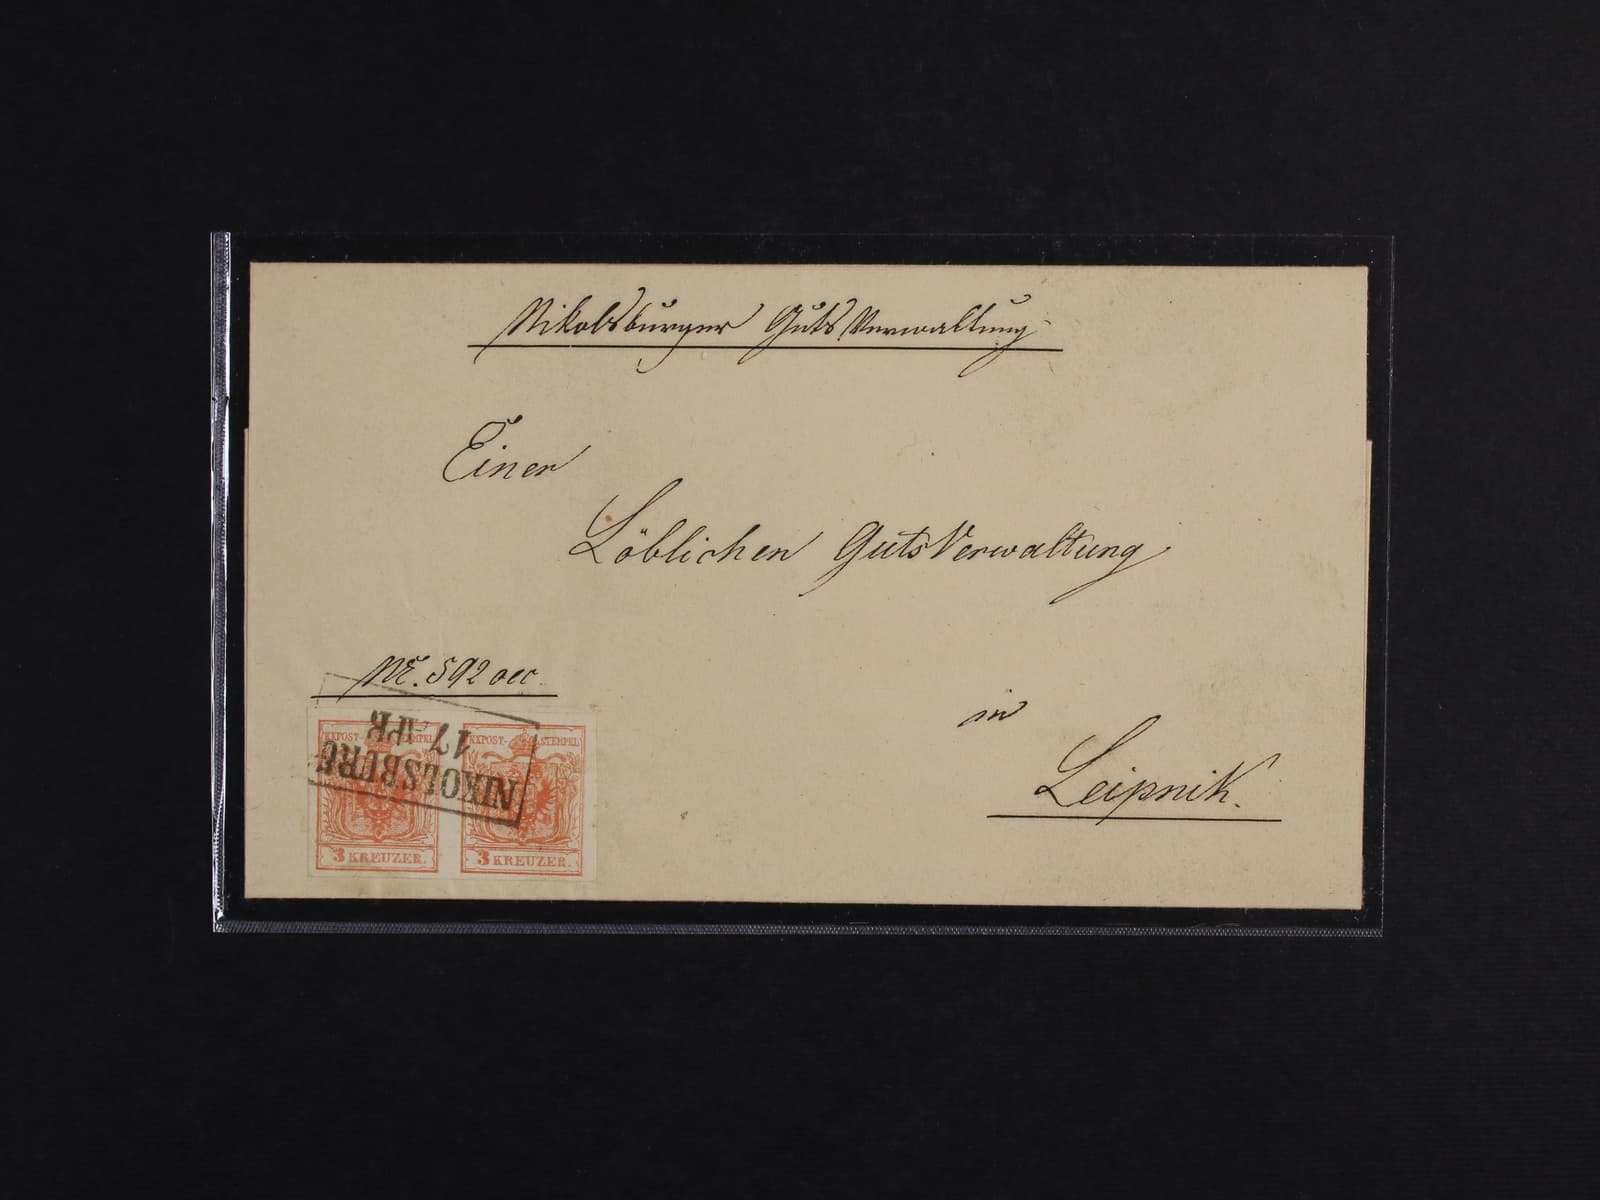 Nikolsburger GutsVerwaltung
Einer
Löblichen GutsVerwaltung
Nr. 592 oec.
in
Leipnik.
NIKOLSBURG
17 APR.
KKPOST-STEMPEL
3 KREUZER.
KKPOST-STEMPEL
3 KREUZER.